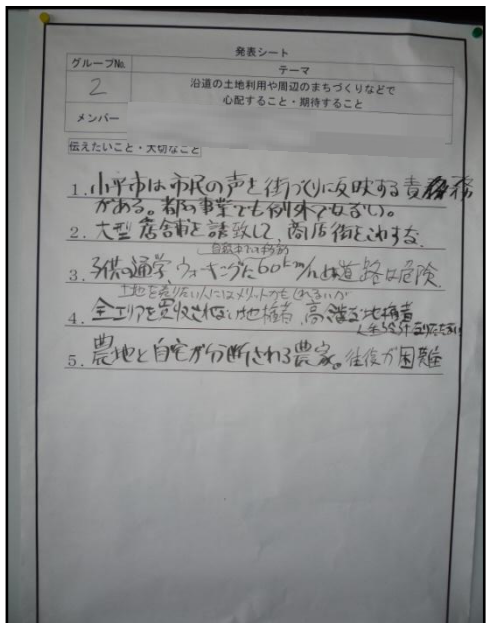 発表シート
グループNo.
テーマ
2
沿道の土地利用や周辺のまちづくりなどで
心配すること・期待すること
メンバー
伝えたいこと・大切なこと
1. 小平市は市民の声を街づくりに反映する責務
がある。都の事業でも例外でない。
2. 大型店舗を誘致して、商店街をこわすな
3. 子供の通学、ウォーキングに60km/h 道路は危険
土地を売りたい人にはメリットかもしれないが
4. 全エリアを買収されない地権者、高
5. 農地と自宅が分断される農家。往復が困難